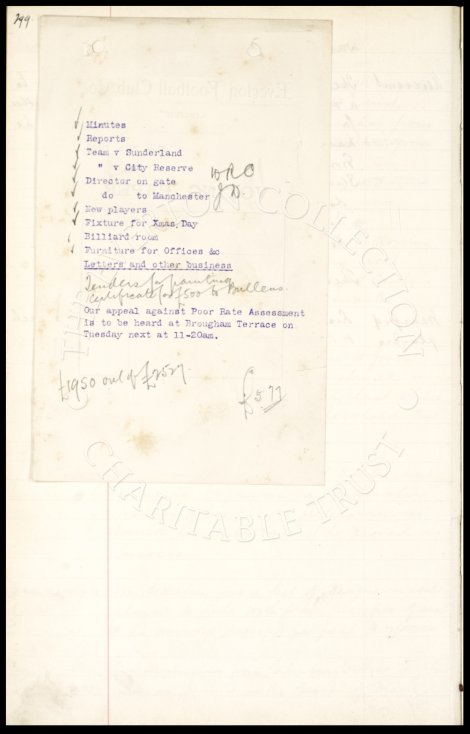 299.
Minutes
Reports
Team v Sunderland
" v City Reserve
Director on gate WRC
do to Manchester JD
New players
Fixture for Xmas Day
Billiard room
Furniture for Offices &c
Letters and other business
Tenders for painting
Certificate for £500 to Bullens
Our appeal against Poor Rate Assessment
is to be heard at Brougham Terrace on
Tuesday next at 11-20am.
£1950 out of £2527
£577
COLLECTION
CHARITABLE TRUST